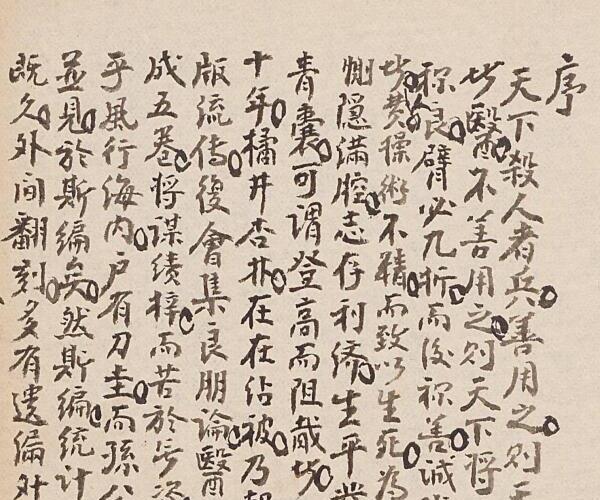 序
天下殺人者兵善用之則
世醫不善用之則天下將
称良臂必九折而後称善誠
世費操術不精而致以生死為
惻隱滿腔志存利濟生平
青囊可謂登高而阻哉
十年橘井杏林在在沾被乃
版流傳復會集良朋論醫
成五卷將謀續梓而苦於
乎風行海内户有刀圭而孫
並見於斯編矣然斯編統計
既久外間翻刻多有遺編